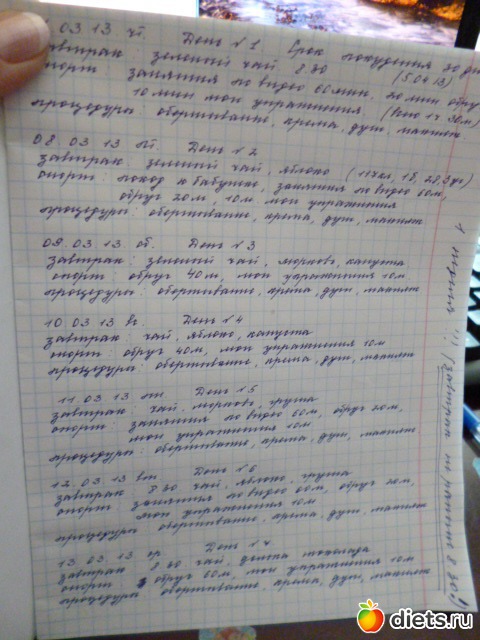 03 13 чт. День №1 Срок похудения 30 дн
завтрак: зеленый чай 8 30 (5.04.13)
спорт занятия по видео 60мин. 20 мин обруч
10 мин мои упражнения (Всего 1ч 30м)
процедуры: обертывание, крема, душ, макияж
08. 03 13 пт. День №2
завтрак: зеленый чай, яблоко
спорт: поход к бабушке, занятия по видео 60м,
обруч 20м, 10м мои упражнения
процедуры: обертывание, крема, душ, макияж
09. 03. 13 сб. День №3
завтрак: зеленый чай, морковь, капуста
спорт: обруч 40м, мои упражнения 10м
процедуры: обертывание, крема, душ, макияж
10 03 13 вс. День №4
завтрак: чай, яблоко, капуста
спорт: обруч 40м, мои упражнения 10м
процедуры: обертывание, крема, душ, макияж
11. 03 13 пн. День №5
завтрак: чай, морковь, груша
спорт: занятия по видео 60м, обруч 20м,
мои упражнения 10м
процедуры: обертывание, крема, душ, макияж
12. 03. 13 вт. День №6
завтрак 8 30 чай, яблоко, груша
спорт: занятия по видео 60м, обруч 20м,
мои упражнения 10м
процедуры: обертывание, крема, душ, макияж
13 03. 13 ср. День №7
завтрак 8 30 чай,
спорт обруч 60м, мои упражнения 10м
процедуры: обертывание, крема, душ, макияж
diets.ru